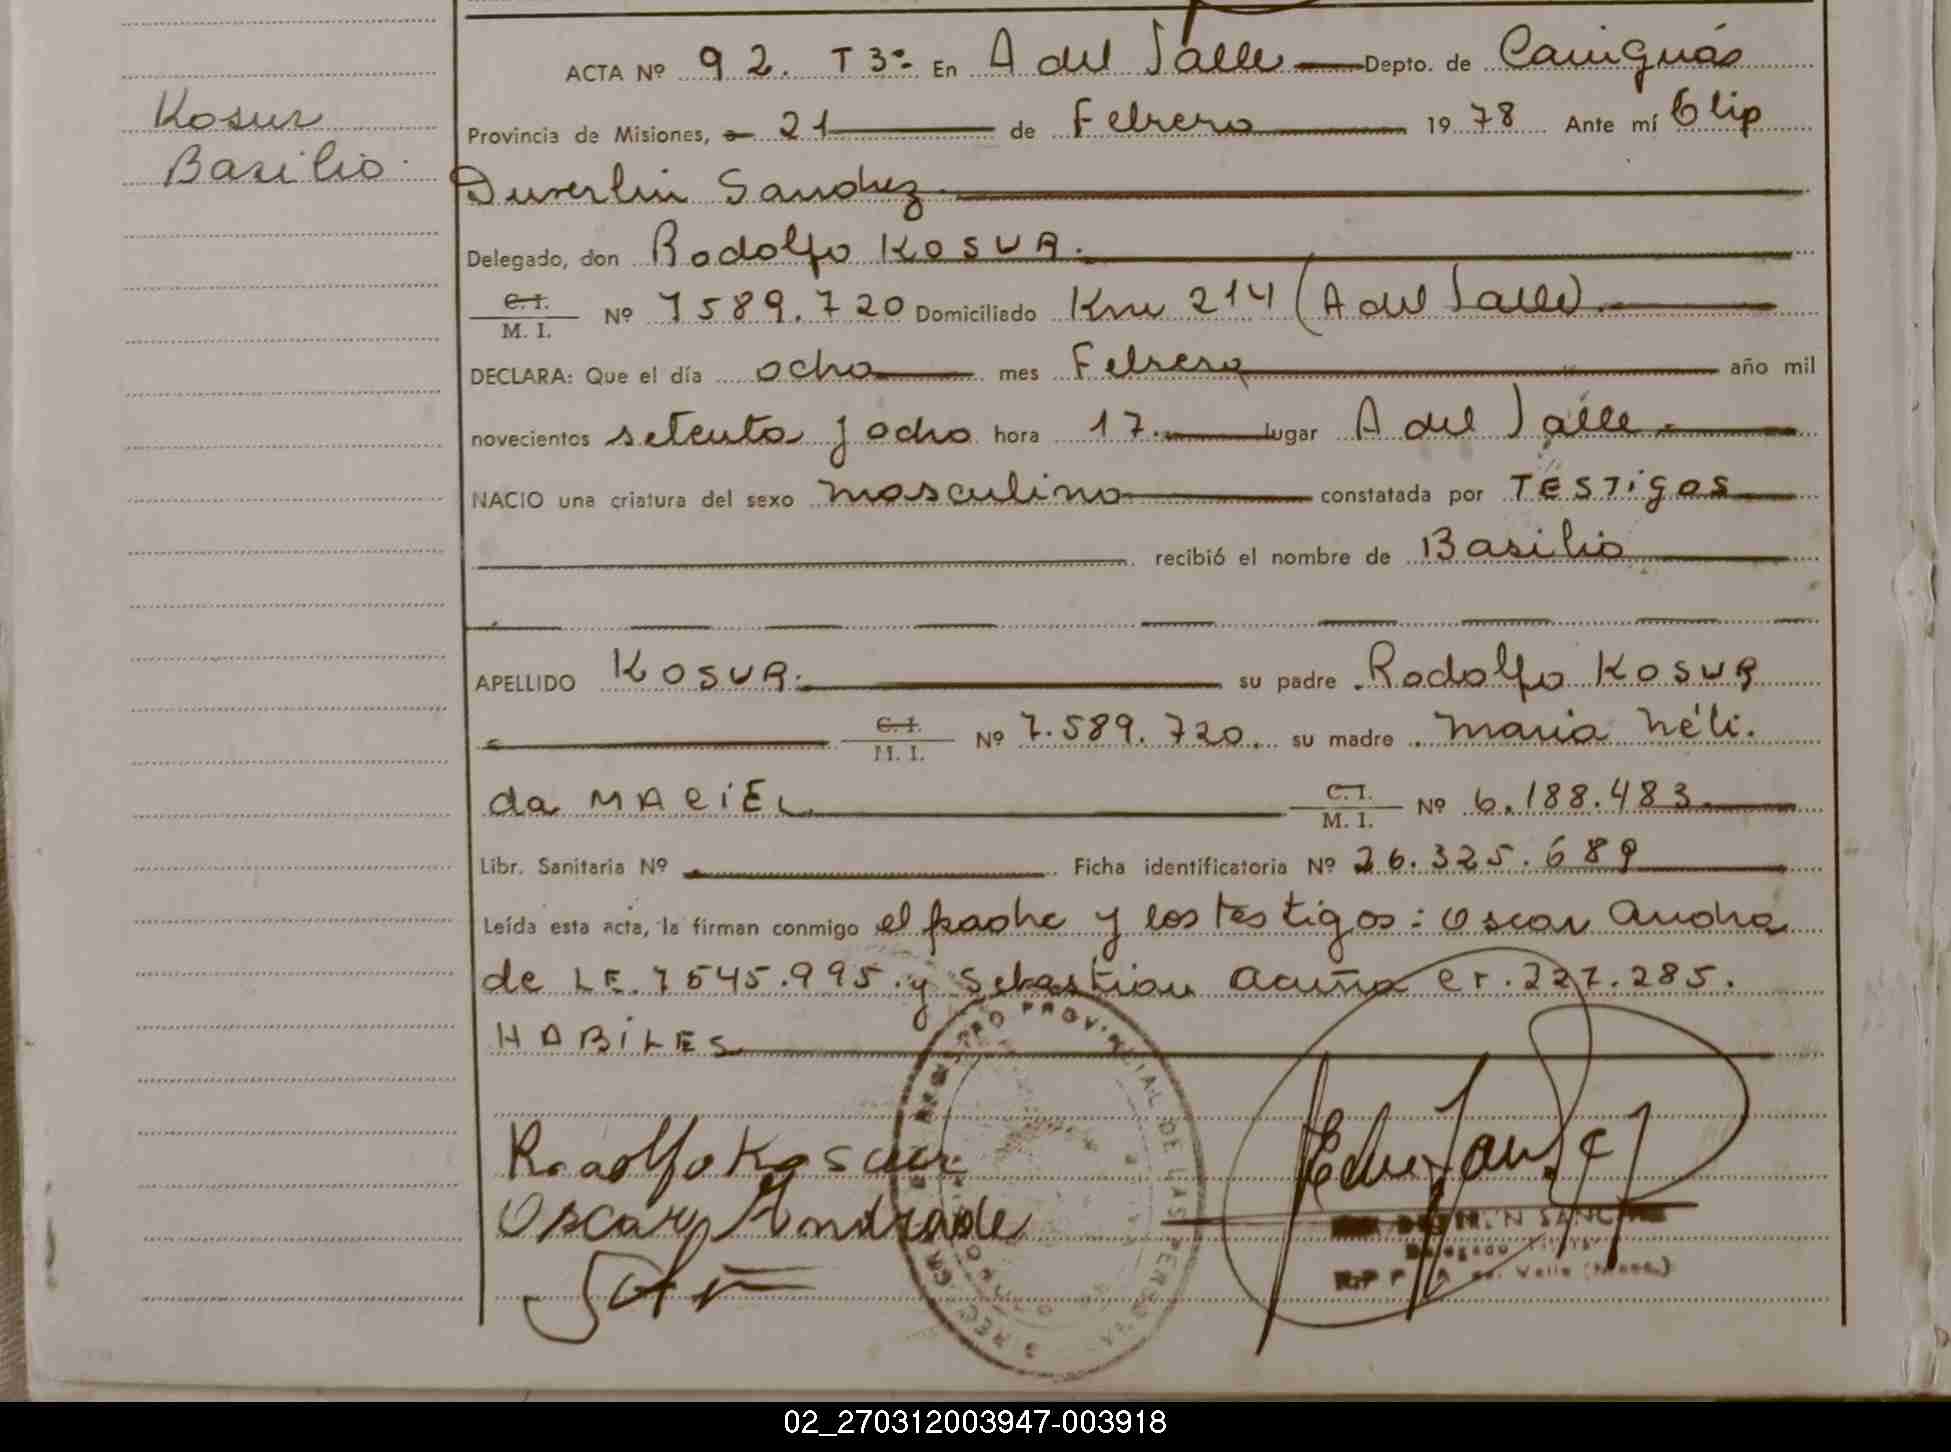 Kosur
Basilio.
ACTA Nº 92. T3º En A del Valle Depto. de Cainguás
Provincia de Misiones, a 21 de Febrero 1978 Ante mí Elip
Duverlin Sanchez
Delegado, don Rodolfo KOSUR.
C. I. / M. I. Nº 7589.720 Domiciliado Km 214 (A del Valle).
DECLARA: Que el día ocho mes Febrero año mil
novecientos setenta y ocho hora 17. lugar A del Valle.
NACIO una criatura del sexo masculino constatada por TESTigos
recibió el nombre de Basilio
APELLIDO KOSUR. su padre Rodolfo KOSUR
C. I. / M. I. Nº 7.589.720. su madre Maria Néli.
da MACiEL C. I. / M. I. Nº 6.188.483.
Libr. Sanitaria Nº Ficha identificatoria Nº 26.325.689
Leída esta acta, la firman conmigo el padre y los testigos: Oscar Andra
de LE. 7545.995. y Sebastian Acuña CI. 227.285.
HABiLES
Rodolfo Kosur
Oscar Andrade
REGISTRO PROVINCIAL DE LAS PERSONAS
SANCHEZ
Delegado
Valle
02_270312003947-003918